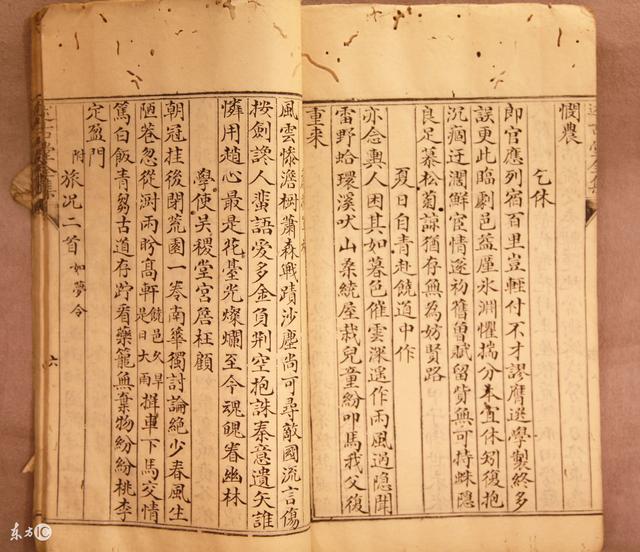 憫農
乞休
即官應列宿百里豈輕付不才謬膺選學製終多
誤更此臨劇邑益厪氷淵懼揣分本宜休矧復抱
沉痼迂濶鮮宦情遂初舊曾賦留貲無可持蛛隱
良足慕松菊諒猶存無為妨賢路
夏日自青赴饒道中作
亦念輿人困其如暮色催雲深遙作雨風過隱聞
雷野蛤環溪吠山桑統屋栽兒童紛叩馬我父復
重来
風雲慘澹樹蕭森戰蹟沙塵尚可尋敵國流言傷
按劍讒人蜚語愛多金負荆空抱誅秦意遺矢誰
憐用趙心最是花臺光燦爛至今魂魄眷幽林
學使吴稷堂宮詹枉顧
朝冠挂後閉荒園一卷南華獨討論絶少春風生
陋巷忽從澍雨盼髙軒饒邑久旱是日大雨揮車下馬交情
篤白飯青芻古道存跱看藥籠無棄物紛紛桃李
定盈門
附旅况二首如夢令
六
东方IC